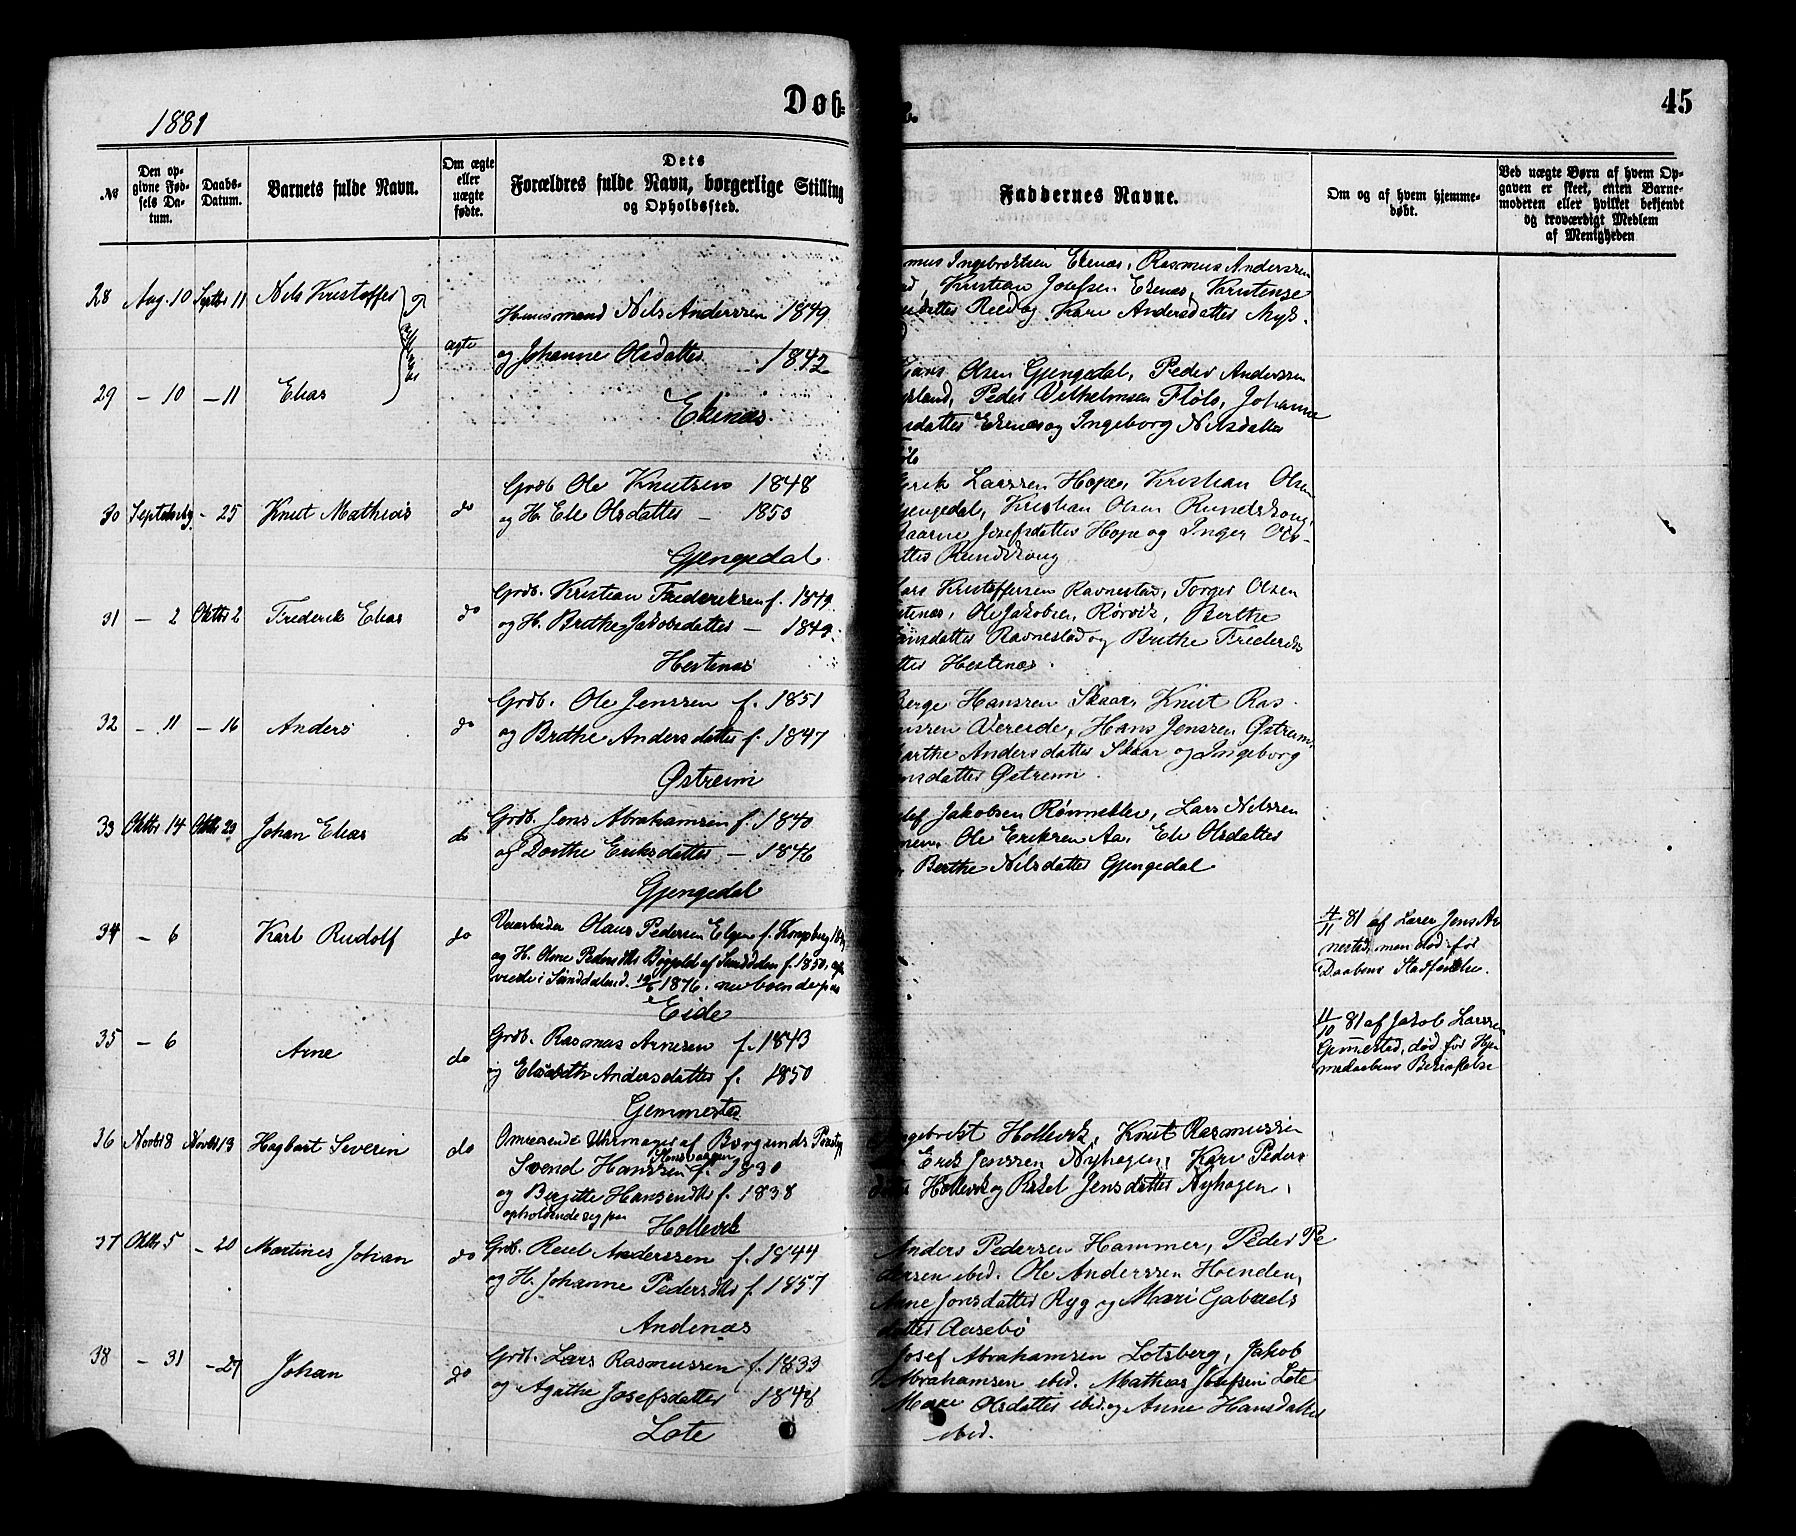 1881
Døb-
45
No
Den op-
givne Fød-
sels Da-
tum.
Daabs-
Datum.
Barnets fulde Navn.
Om ægte
eller
uægte
fødte.
Dets
Forældres fulde Navn, borgerlige Stilling
og Opholdssted.
Faddernes Navne.
Om og af hvem hjemme-
døbt.
Ved uægte Børn af hvem Op-
gaven er skeet, enten Barne-
moderen eller hvilket bekjendt
og troværdigt Medlem
af Menigheden
28 Aug. 10 Septbr 11 Nils Kristoffer
ægte
Huusmand Nils Anderssen 1849
og Johanne Olsdatter 1842
29 – 10 – 11 Elias
Ekenæs
Ingebrektsen Ekenæs, Rasmus Anderssen
Kristian Josefsen Ekenæs, Kristense
Reed og Kari Andersdatter Myk-
Olsen Gjengedal, Peder Anderssen
Peder Vilhelmsen Flølo, Johanne
Ekenæs og Ingeborg Nilsdatter
30 – 25 Knut Mathias do
Grdb Ole Knutsen 1848
og H. Ele Olsdatter – 1850
Gjengedal
Larssen Hope, Kristian Olsen
Gjengedal, Kristian Olsen
Josefsdatter Hope og Inger Ols-
31 – 2 Oktbr 2 Frederik Elias do
Grdb. Kristian Frederiksen f. 1849
og H. Brithe Jakobsdatter – 1849
Hestenæs
Kristoffersen Ravnestad, Torger Olsen
Ole Jakobsen Rørvik, Berthe
Ravnestad og Brithe Frederiks
Hestenæs.
32 – 11 – 16 Anders do
Grdb. Ole Jenssen f. 1851
og Brithe Andersdatter f. 1847
Østreim
Berge Hanssen Skaar, Knut Ras-
Vereide, Hans Jenssen Østreim,
Andersdatter Skaar og Ingeborg
Østreim.
33 Oktbr 14 Oktbr 23 Johan Elias do
Grdb. Jens Abrahamsen f. 1840
og Dorthe Eriksdatter – 1846
Gjengedal
Jakobsen Rønnekleiv, Lars Nilssen
Ole Eriksen Aa, Ele Olsdatter
Berthe Nilsdatter Gjengedal
34 – 6 Karl Rudolf do
Olaus Pedersen Elgen f. Kongsberg
og H. Olme af Sunddalen f. 1850,
viede i Sunddalen d. 1876. nu boende paa
Eide
4/11 81 af Lærer Jens Ar
nestad, men død før
Daabens Stadfæstelse.
35 – 6 Arne do
Grdb. Rasmus Arnesen f. 1843
og Elisabeth Andersdatter f. 1850
Gemmestad
11/10 81 af Jakob Larssen
Gemmestad, død før Hjem-
medaabens Bekræftelse
36 Novbr 8 Novbr 13 Hagbart Severin do
Omreisende Uhrmager af Borgunds Præstgj
Svend Hanssen f. 1830
og Bergitte Hansendtr f. 1838
opholdende sig paa
Hollevik
Ingebrekt Hollevik, Knut Rasmussen
Erik Jenssen Nyhagen, Kari Peders
datter Hollevik og Rakel Jensdatter Nyhagen.
37 Oktbr 5 – 20 Martines Johan do
Grdb. Reiel Anderssen f. 1844
og H. Johanne Pedersdtr f. 1857
Andenæs
Anders Pedersen Hammer, Peder Pe
dersen ibid. Ole Anderssen Hoenden,
Anne Jonsdatter Ryg og Mari Gabriels
datter Aasebø
38 – 31 – 27 Johan do
Grdb. Lars Rasmussen f. 1833
og Agathe Josefsdatter 1848
Lote
Josef Abrahamsen Lotsberg, Jakob
Abrahamsen ibid. Mathias Josefsen Lote
Olsdatter ibid. og Anne Hansdatter
ibid.